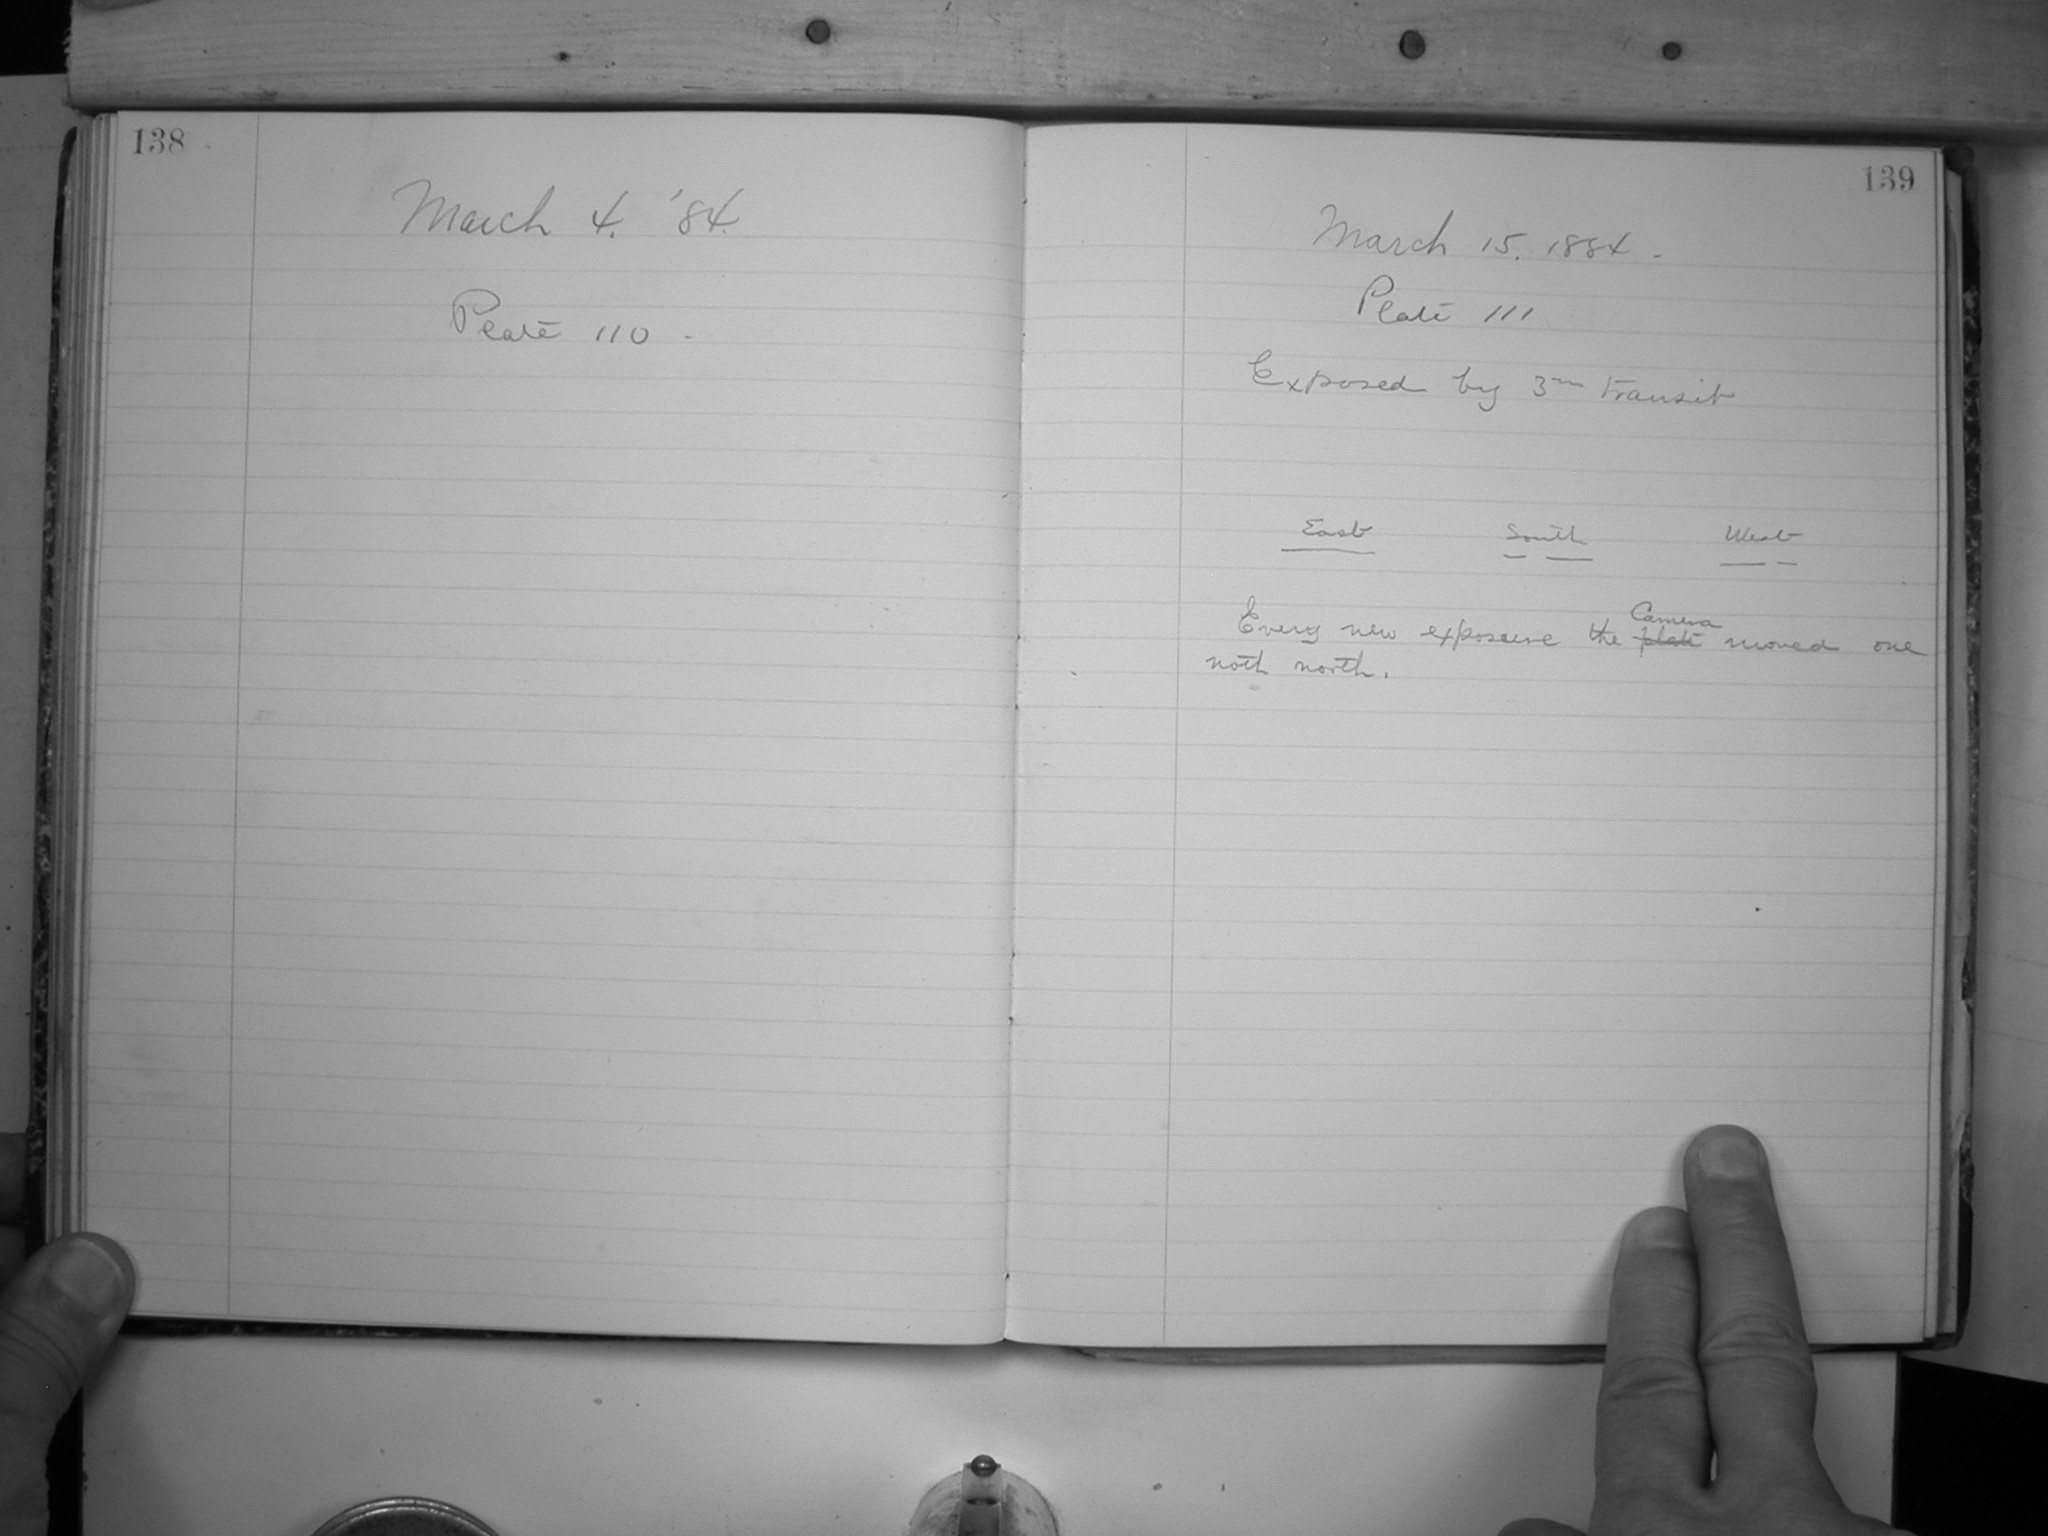 138
March 4. '84.
Plate 110 -
139
March 15. 1884.
Plate 111
Exposed by 3m transit
East South West
Every new exposure the plate Camera moved one
noth north.